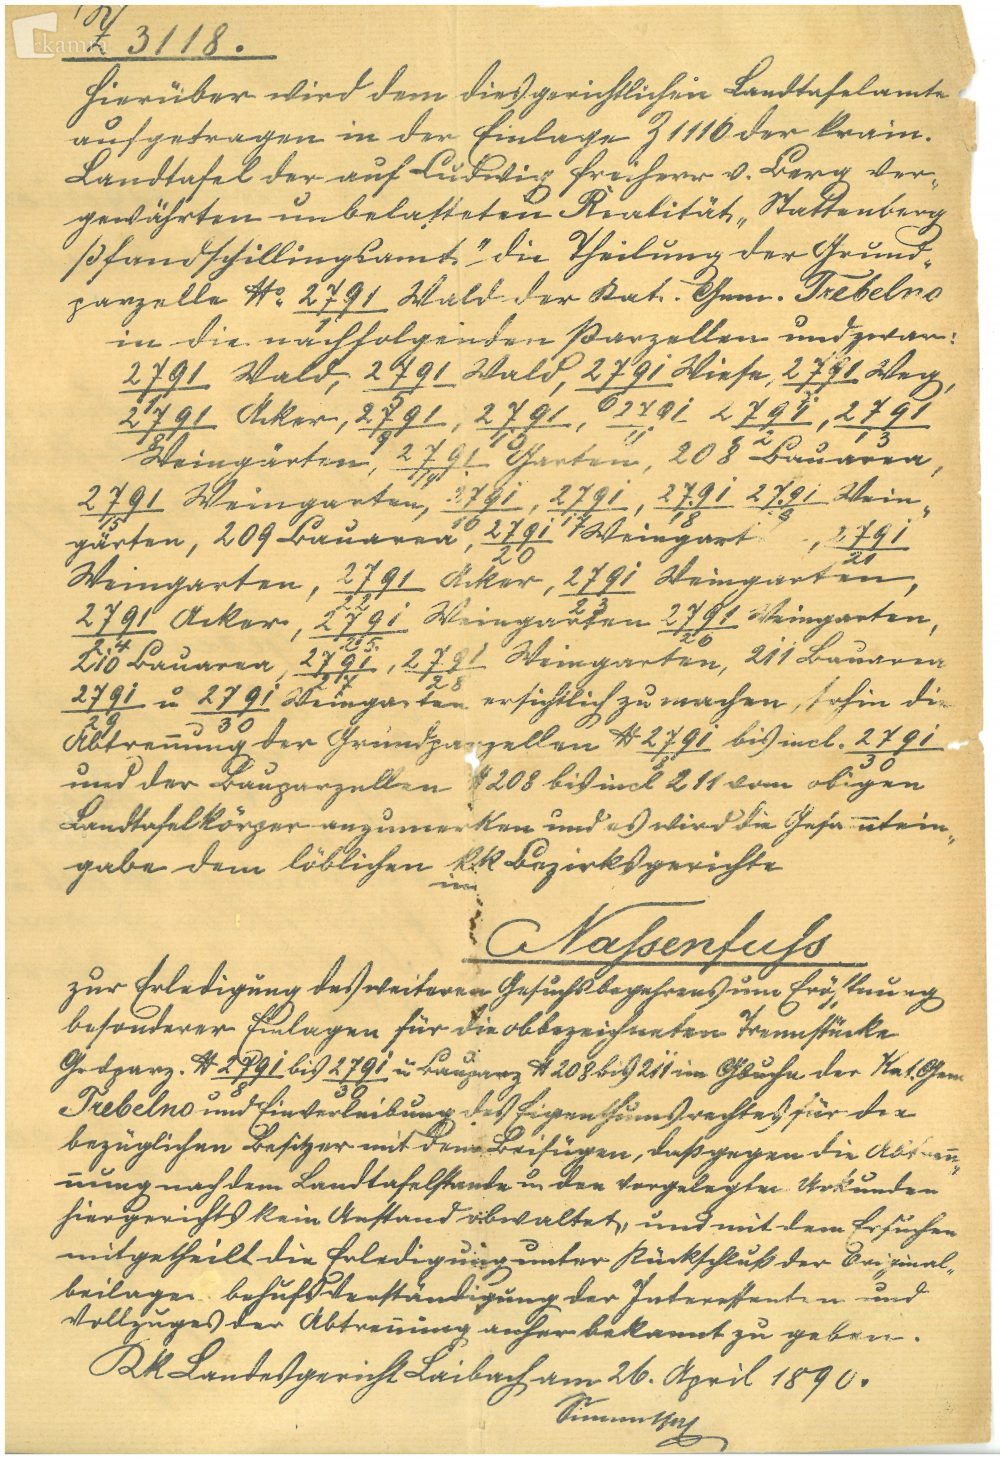 kamra
Z 3118.
Hierüber wird dem diesgerichtlichen Landtafelamte
aufgetragen in der Einlage Z 1116 der krain.
Landtafel der auf Ludwig Freiherr v. Berg ver-
gewährten unbelasteten Realität „Stattenberg
Pfandschillingsamt" die Theilung der Grund-
parzelle No. 2791/1 Wald der Kat. Gem. Trebelno
in die nachfolgenden Parzellen und zwar:
2791/1 Wald, 2791/5 Wald, 2791/6 Wiese, 2791 Weg,
2791/8 Acker, 2791/9, 2791/10, 2791/11 2791/12, 2791/13
Weingärten, 2791/14 Garten, 208 Bauarea,
2791/15 Weingarten, 2791/16, 2791/17, 2791/18 2791/19 Wein-
gärten, 209 Bauarea, 2791/20 Weingart, 2791/21
Weingarten, 2791/22 Acker, 2791/23 Weingarten,
2791/24 Acker, 2791/25 Weingarten 2791/26 Weingarten,
210 Bauarea, 2791/27, 2791/28 Weingarten, 211 Bauarea
2791/29 u 2791/30 Weingarten ersichtlich zu machen, sohin die
Abtrennung der Grundparzellen # 2791/8 bis incl. 2791/30
und der Bauparzellen # 208 bis incl 211 vom obigen
Landtafelkörper anzumerken und es wird die Gesammtein-
gabe dem löblichen k k Bezirksgerichte
in
Nassenfuss
zur Erledigung des weiteren Gesuchsbegehrens um Eröffnung
besonderer Einlagen für die obbezeichneten Trennstücke
Grdparz. # 2791/8 bis 2791/30 u Bauparz # 208 bis 211 im Gbuche der Kat. Gem
Trebelno und Einverleibung des Eigenthumsrechtes für die
bezüglichen Besitzer mit dem Beifügen, daß gegen die Abtren-
nung nach dem Landtafelstande u den vorgelegten Urkunden
hiergerichts kein Anstand obwaltet, und mit dem Ersuchen
mitgetheilt die Erledigung unter Rückschluß der Original-
beilagen behufs Verständigung der Interessenten und
Vollzuges der Abtrennung anher bekannt zu geben.
KK Landesgericht Laibach am 26. April 1890.